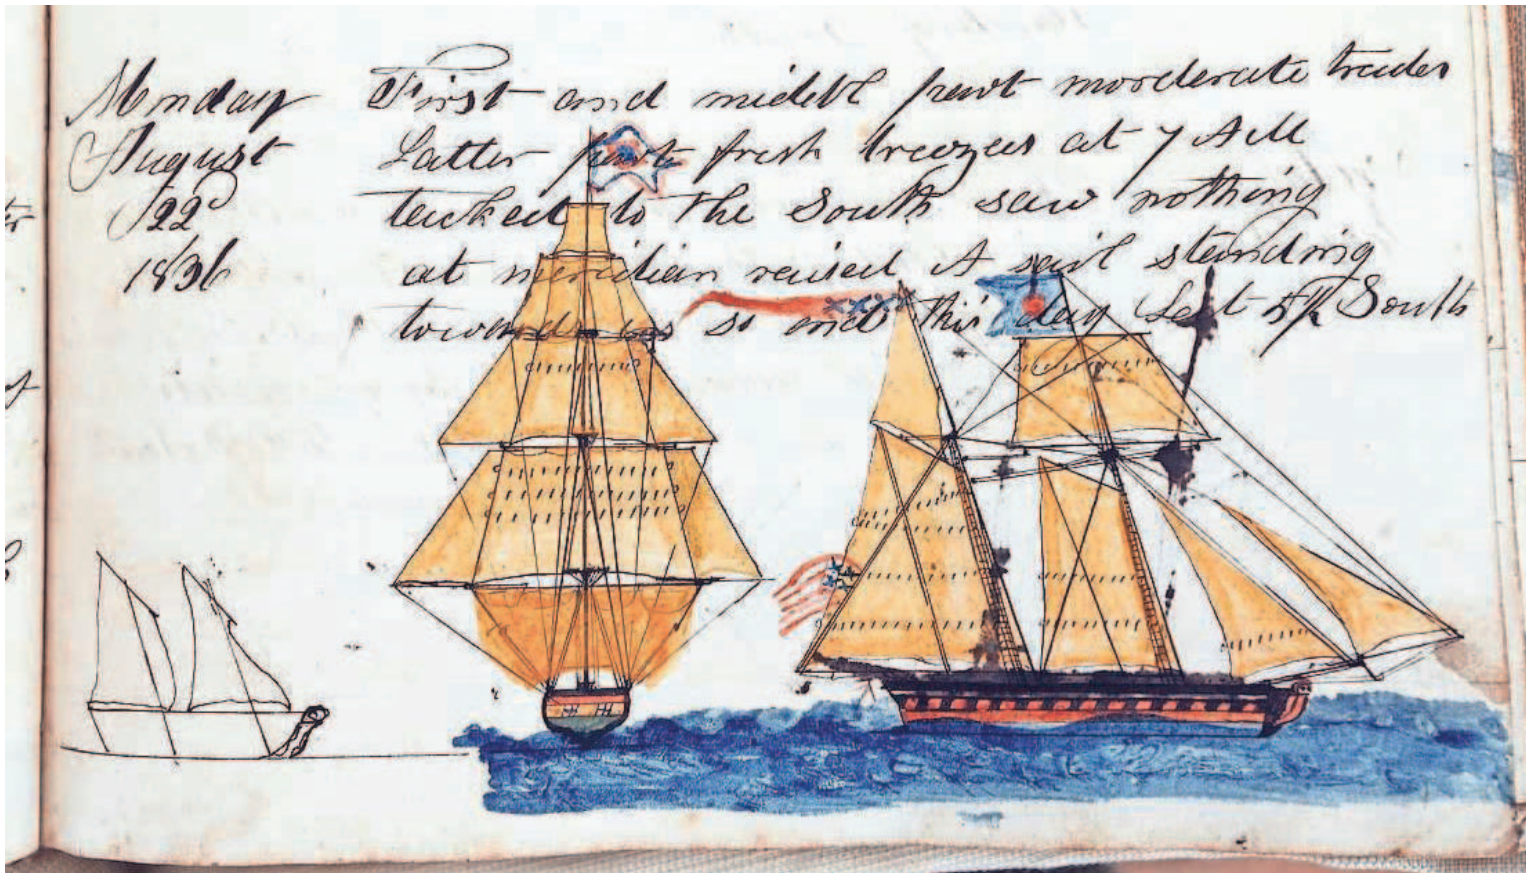 Monday First and middel part morderate trades
August Latter part fresh breezes at 7 AM
22d tacked to the South saw nothing
1836 at meridian raised A sail standing
towards us so ends this day Lat South